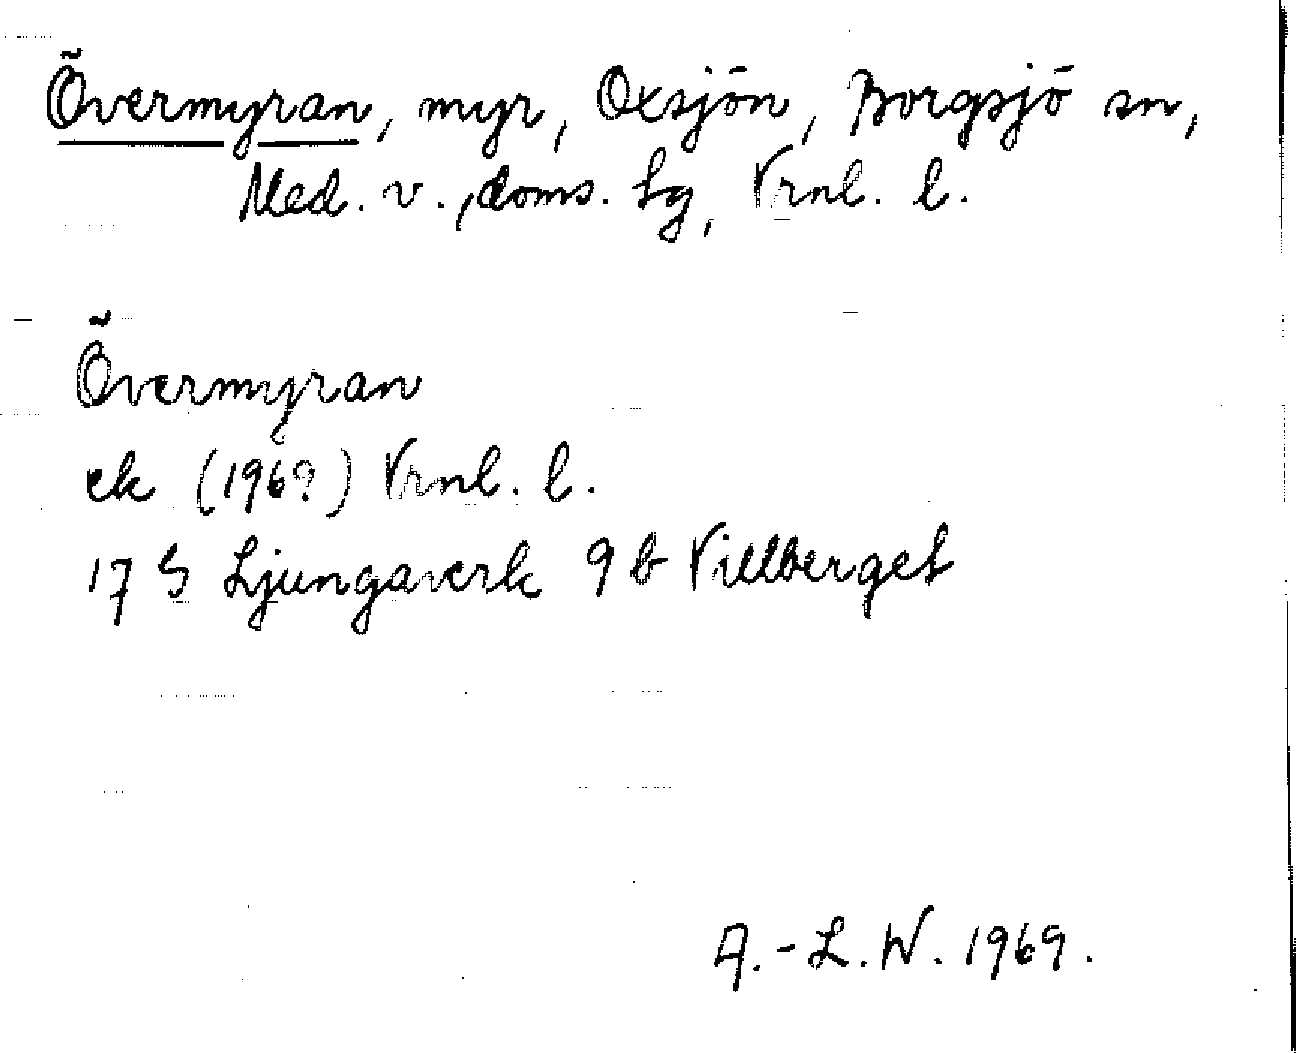 Övermyran, myr, Oxsjön, Borgsjö sn,
Med. v., doms. hg, Vrnl. l.
Övermyran
ek (1969) Vrnl. l.
17 G Ljungaverk 9 b Villberget
A.-L.W. 1969.